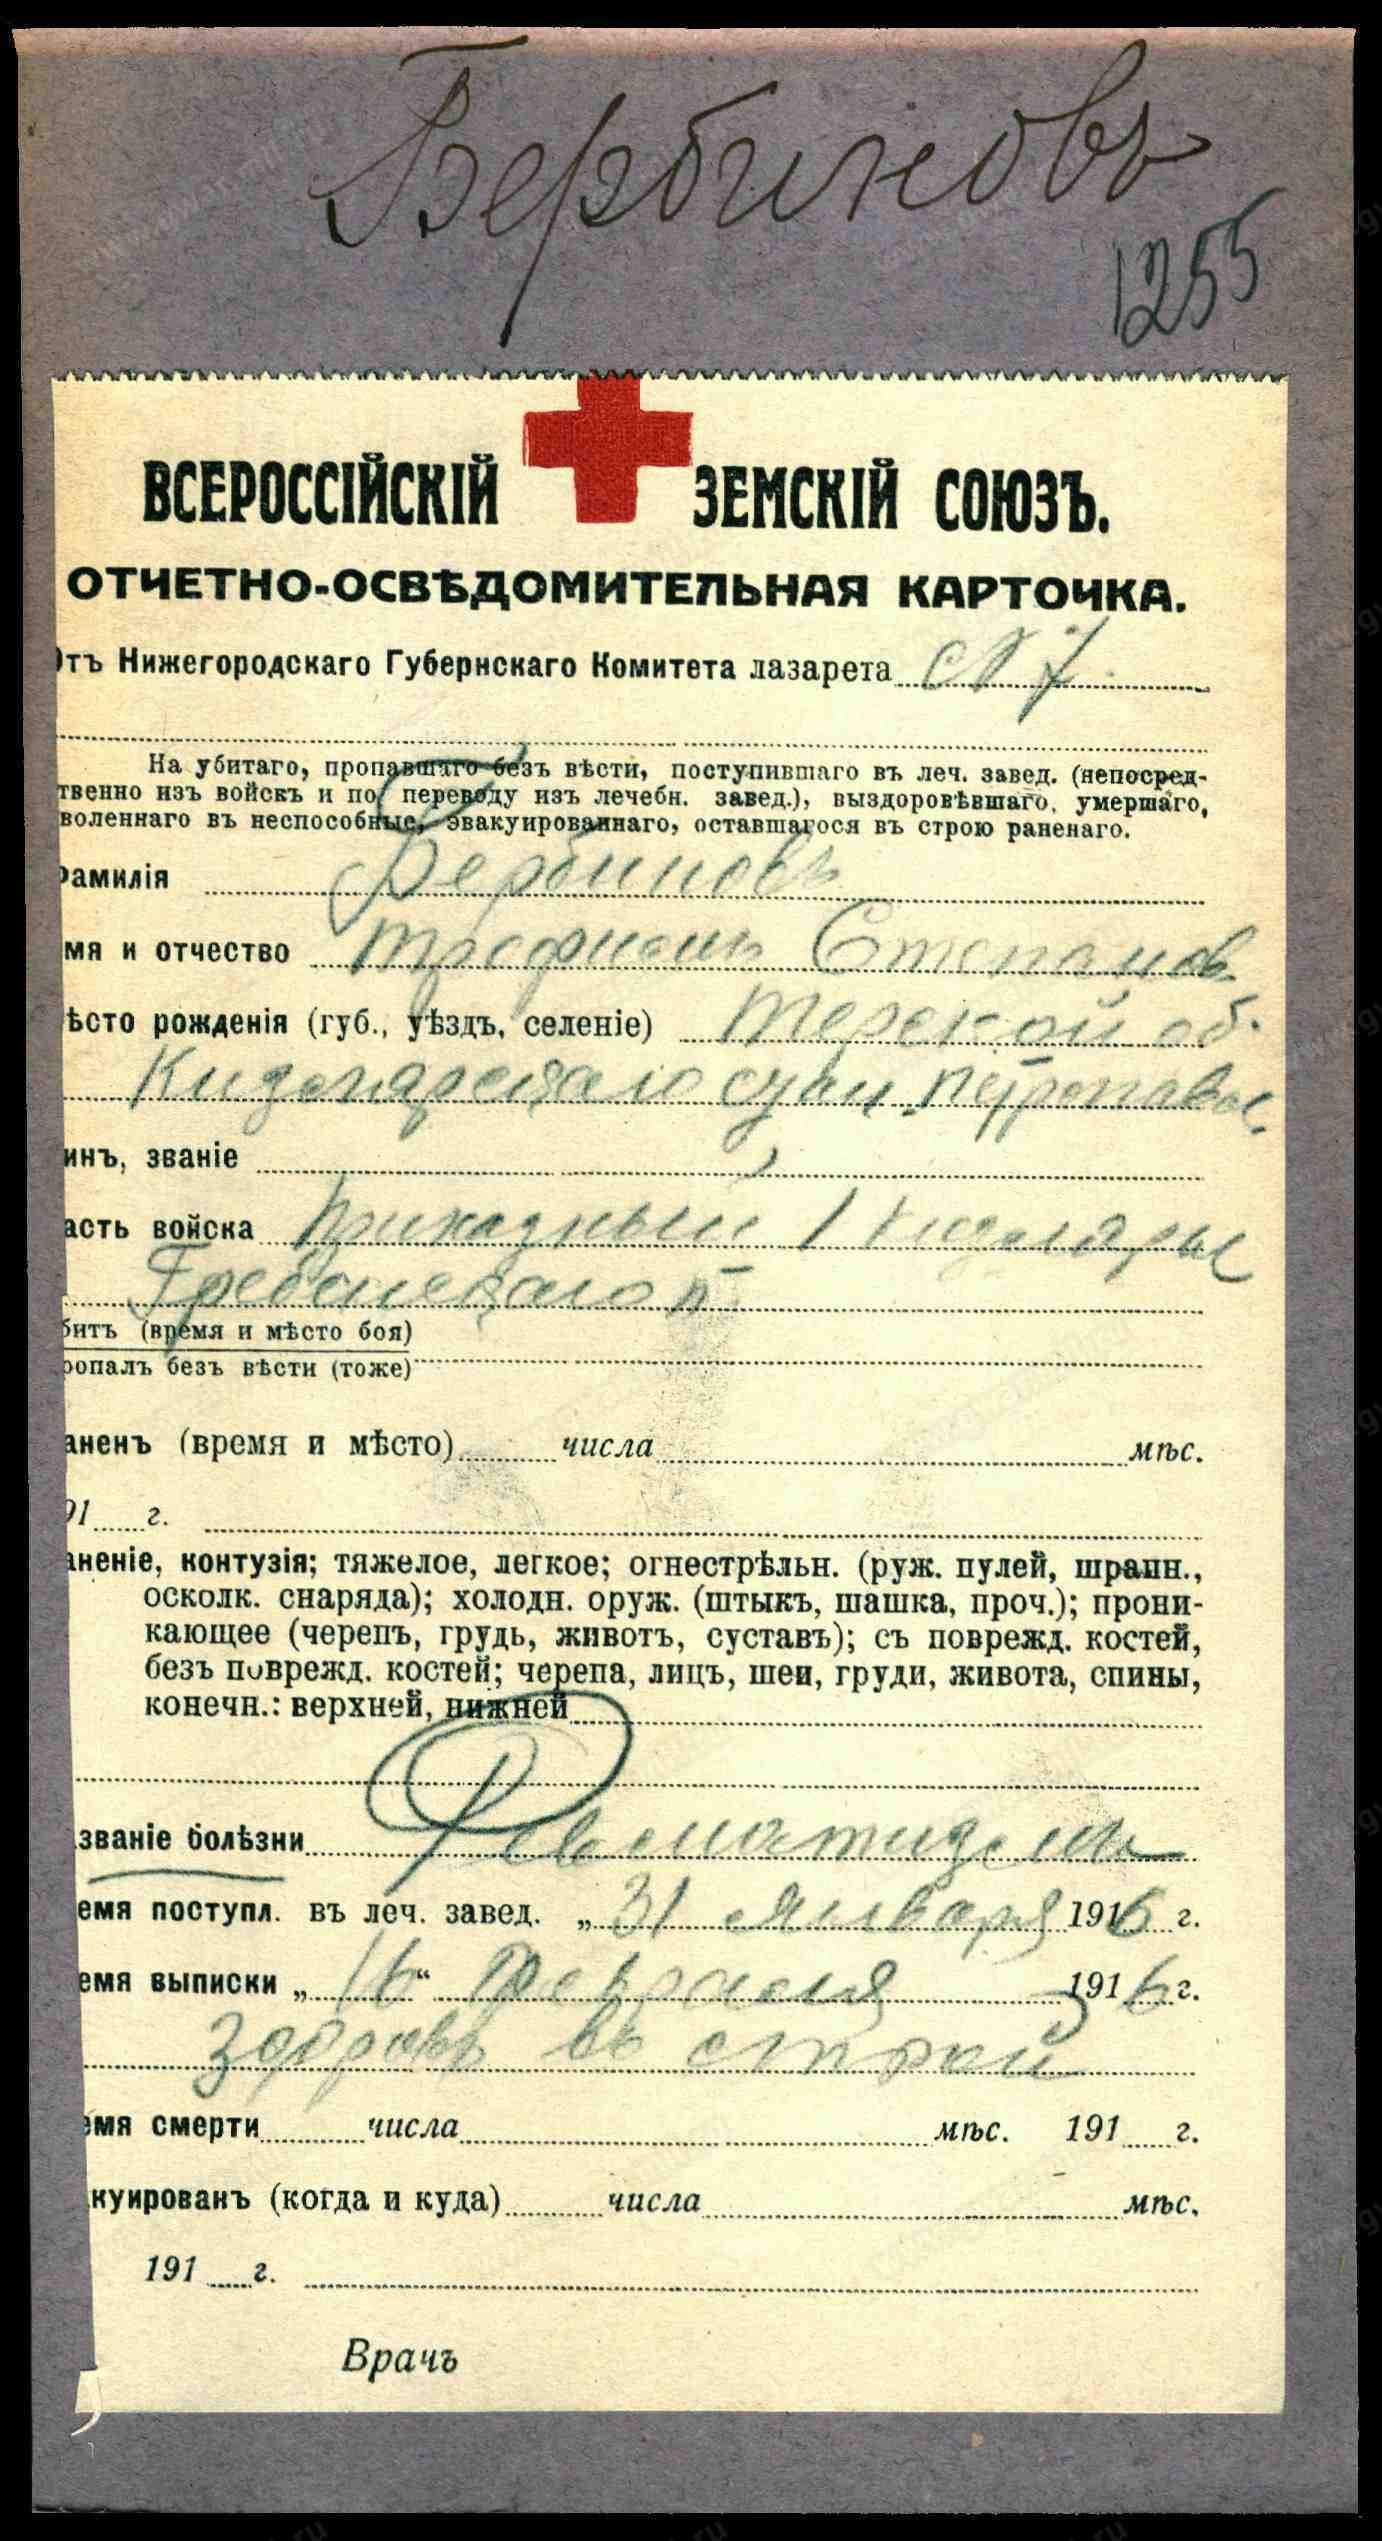 Бербиновъ
1255
ВСЕРОССІЙСКІЙ ЗЕМСКІЙ СОЮЗЪ.
ОТЧЕТНО-ОСВѢДОМИТЕЛЬНАЯ КАРТОЧКА.
тъ Нижегородскаго Губернскаго Комитета лазарета № 7
На убитаго, пропавшаго безъ вѣсти, поступившаго въ леч. завед. (непосред-
твенно изъ войскъ и по переводу изъ лечебн. завед.), выздоровѣвшаго, умершаго,
воленнаго въ неспособные, эвакуированнаго, оставшагося въ строю раненаго.
амилія Бербиновъ
мя и отчество Трофимъ Степанов
ѣсто рожденія (губ., уѣздъ, селеніе) Терской об.
Кизлярскаго стан. Петропавл.
инъ, званіе
асть войска Приказный 1 Кизляры
Гребенскаго п
битъ (время и мѣсто боя)
ропалъ безъ вѣсти (тоже)
аненъ (время и мѣсто) числа мѣс.
91 г.
неніе, контузія; тяжелое, легкое; огнестрѣльн. (руж. пулей, шрапн.,
осколк. снаряда); холодн. оруж. (штыкъ, шашка, проч.); прони-
кающее (черепъ, грудь, животъ, суставъ); съ поврежд. костей,
безъ поврежд. костей; черепа, лицъ, шеи, груди, живота, спины,
конечн.: верхней, нижней
званіе болѣзни Ревматизмъ
емя поступл. въ леч. завед. „ 31 Января 1916 г.
емя выписки „ 16 " Февраля 1916 г.
Здоровъ въ строй
емя смерти числа мѣс. 191 г.
куированъ (когда и куда) числа мѣс.
191 г.
Врачъ